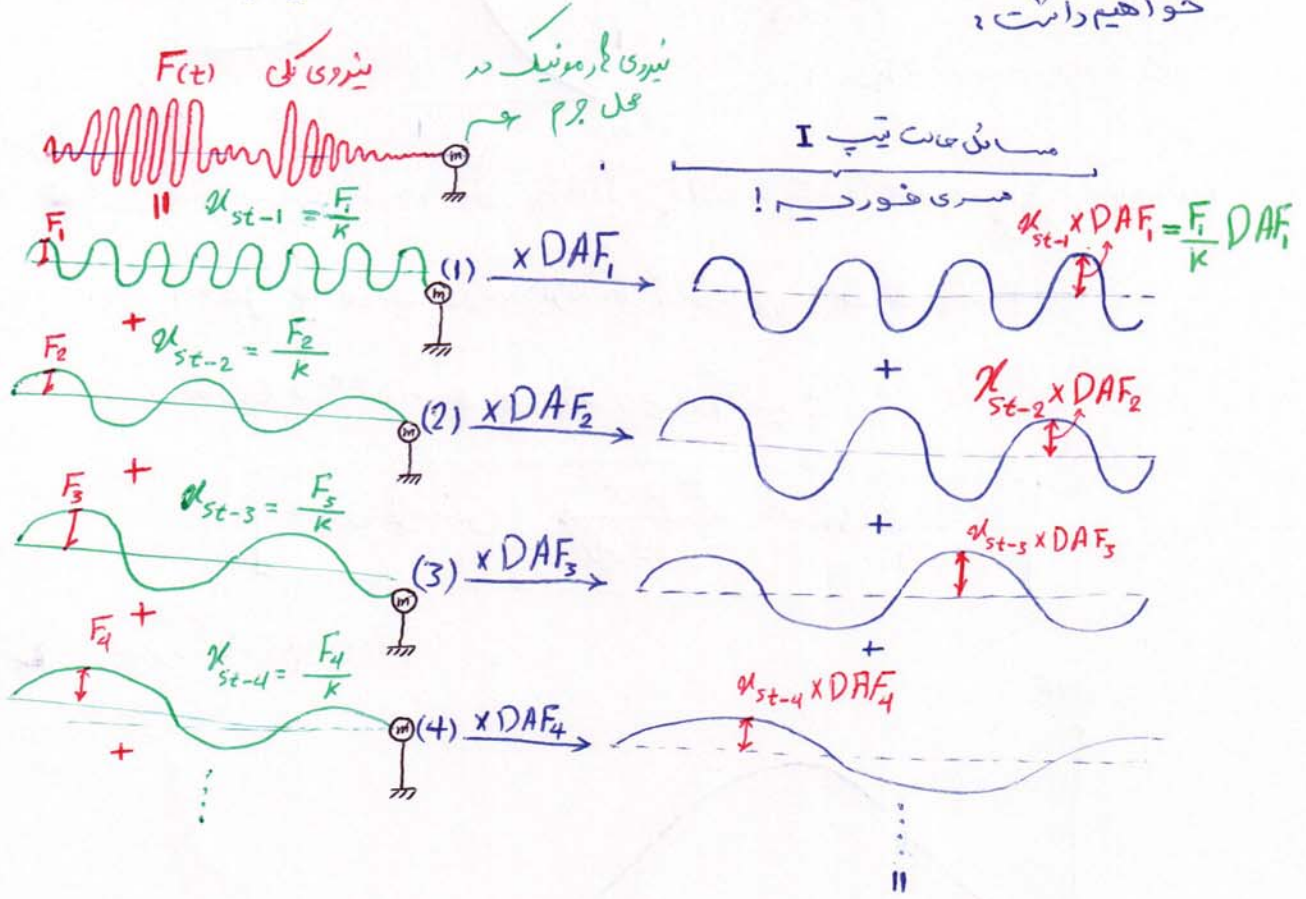 خواهیم داشت:
نیروی کلی F(t)
نیروی هارمونیک در
محل جرم
مسائل حالت تیپ I
سری فوریه!
F₁
x_{st-1} = F₁/K
(1) × DAF₁
x_{st-1} × DAF₁ = F₁/K DAF₁
=
m
+
F₂
x_{st-2} = F₂/K
(2) × DAF₂
x_{st-2} × DAF₂
m
+
+
F₃
x_{st-3} = F₃/K
(3) × DAF₃
x_{st-3} × DAF₃
m
+
+
F₄
x_{st-4} = F₄/K
(4) × DAF₄
x_{st-4} × DAF₄
m
+
+
m
=